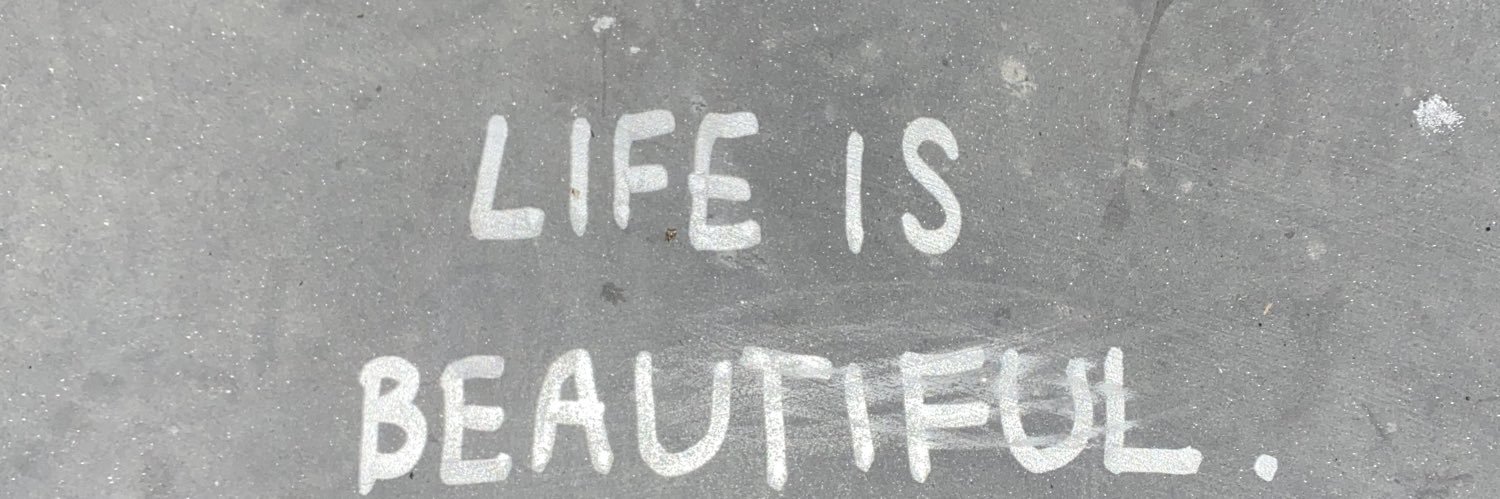 LIFE IS
BEAUTIFUL.